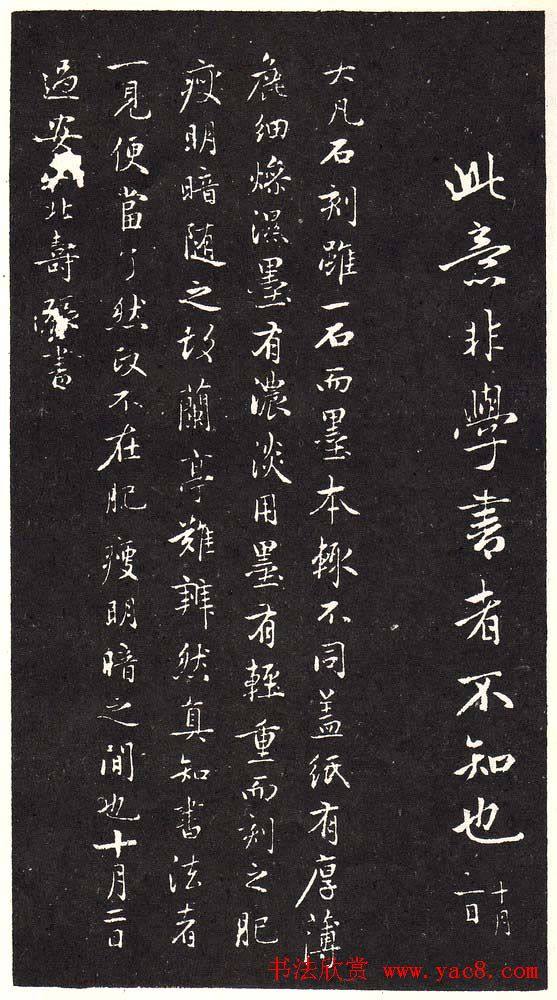 此意非學書者不知也
十月
一日
大凡石刻雖一石而墨本輒不同蓋紙有厚薄
麁細燥濕墨有濃淡用墨有輕重而刻之肥
瘦明暗随之故蘭亭難辨然真知書法者
一見便當了然政不在肥瘦明暗之間也十月二日
過安北壽書
书法欣赏 www.yac8.com